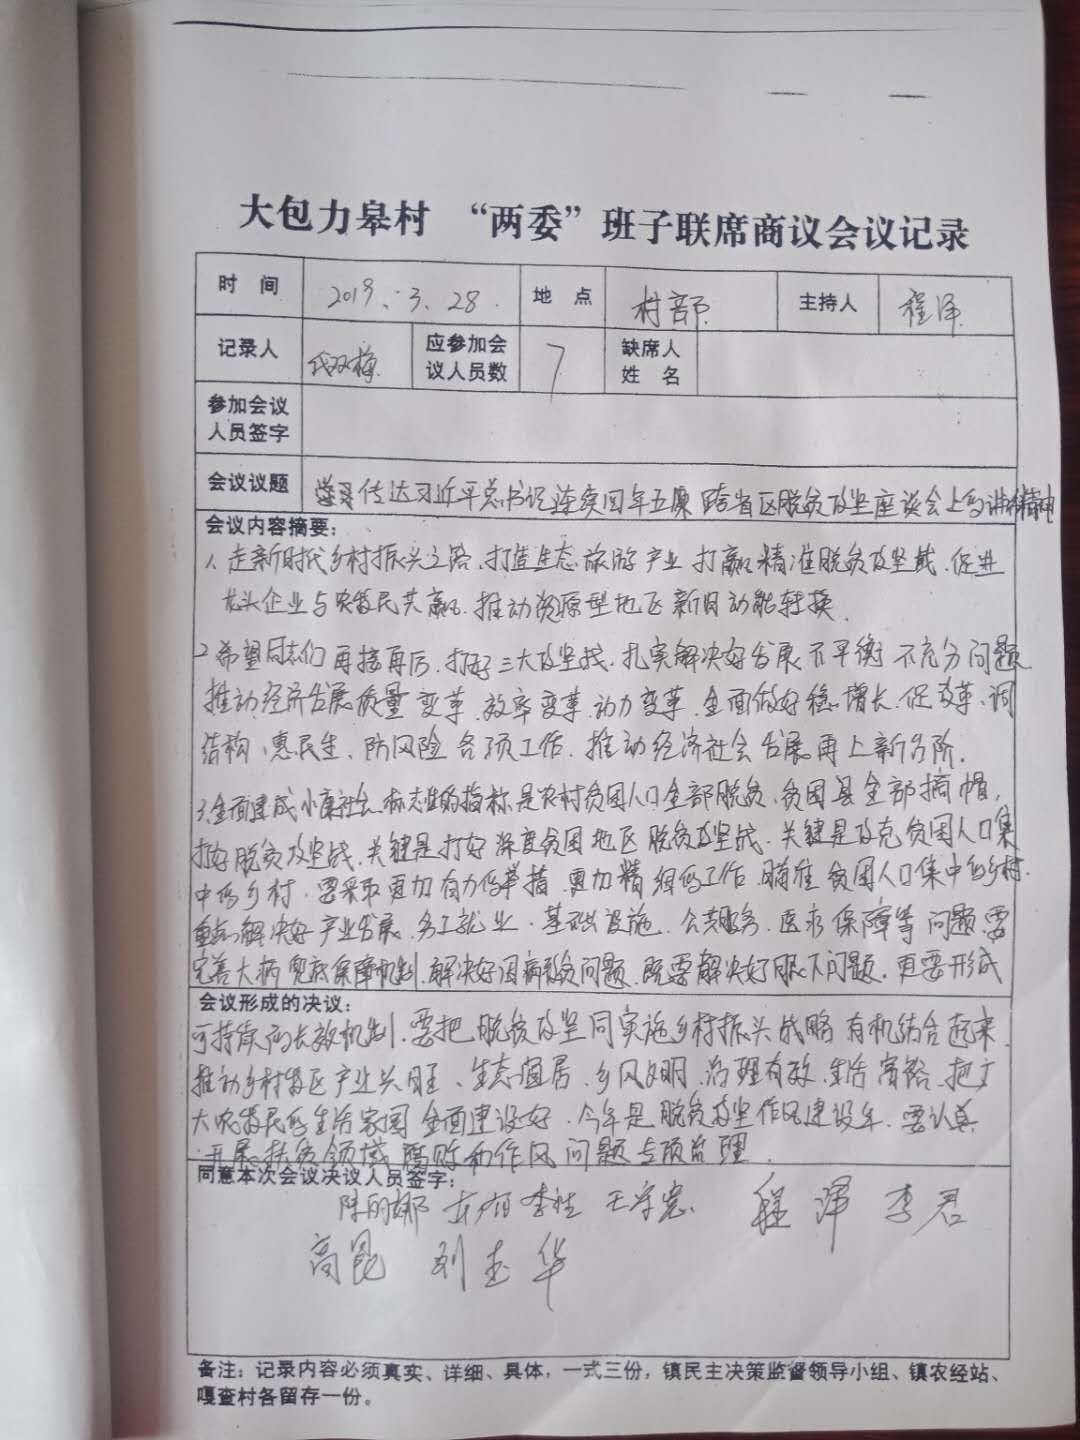 大包力皋村 “两委”班子联席商议会议记录
时 间 2019.3.28. 地 点 村部 主持人 程泽
记录人 应参加会议人员数 7 缺席人姓 名
参加会议人员签字
会议议题 学习传达习近平总书记连续四年五席跨省区脱贫攻坚座谈会上的讲话精神
会议内容摘要：
1、走新时代乡村振兴之路、打造生态旅游产业 打赢精准脱贫攻坚战、促进
龙头企业与农牧民共赢、推动资源型地区新旧动能转换.
2 希望同志们再接再厉、打好三大攻坚战、扎实解决好发展不平衡 不充分问题
推动经济发展质量变革、效率变革、动力变革、全面做好稳增长、促改革、调
结构、惠民生、防风险各项工作、推动经济社会发展再上新台阶.
3、全面建成小康社会、标志性的指标是农村贫困人口全部脱贫、贫困县全部摘帽，
打好脱贫攻坚战、关键是打好深度贫困地区脱贫攻坚战、关键是攻克贫困人口集
中的乡村、要采取更加有力的举措、更加精细的工作、瞄准贫困人口集中的乡村.
重点解决好产业发展、务工就业、基础设施、公共服务、医疗保障等问题、要
完善大病兜底保障机制、解决好因病致贫问题、既要解决好眼下问题、更要形成
会议形成的决议：
可持续的长效机制、要把脱贫攻坚同实施乡村振兴战略有机结合起来、
推动乡村牧区产业兴旺、生态宜居、乡风文明、治理有效、生活富裕、把广
大农牧民的生活家园全面建设好、今年是脱贫攻坚作风建设年、要认真
开展扶贫领域腐败和作风问题专项治理.
同意本次会议决议人员签字：
陈丽娜 李桂 王宇宏 程泽 李君
高昆 刘志华
备注：记录内容必须真实、详细、具体，一式三份，镇民主决策监督领导小组、镇农经站、
嘎查村各留存一份。